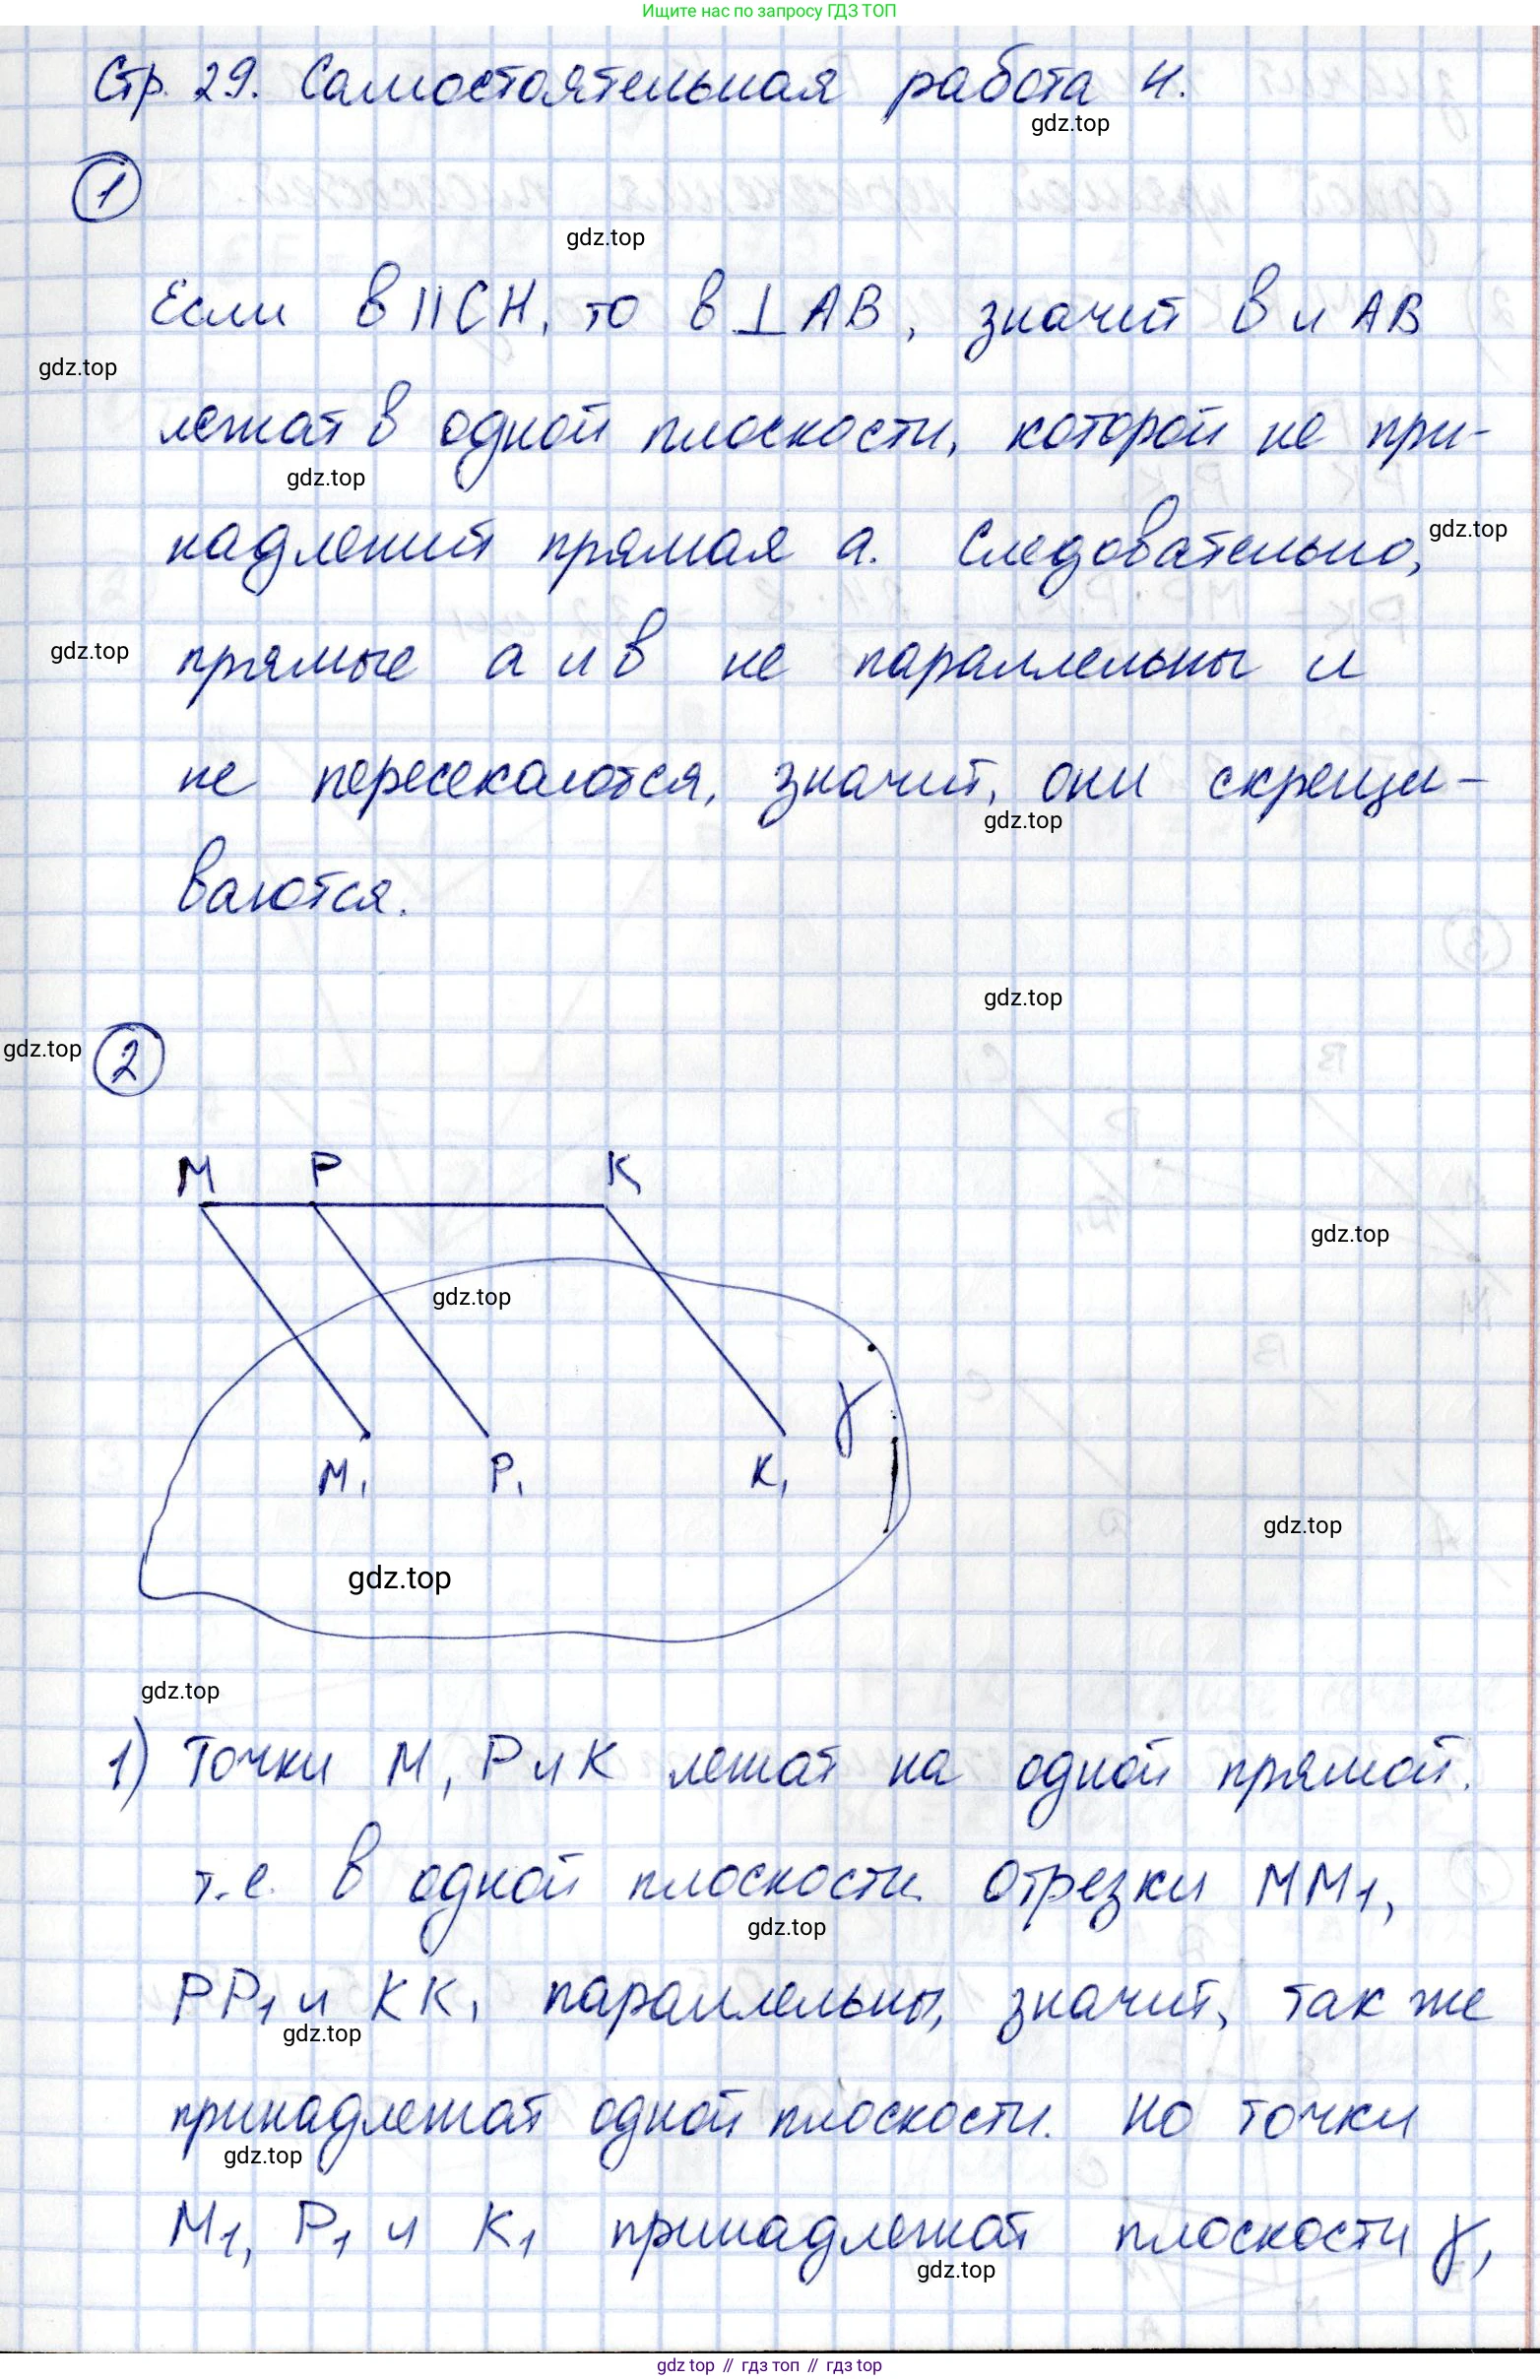 Ищите нас по запросу ГДЗ ТОП
Стр. 29. Самостоятельная работа 4.
gdz.top
1
gdz.top
Если в || СН, то в ⊥ АВ, значит в и АВ
gdz.top
лежат в одной плоскости, которой не при-
gdz.top
надлежит прямая а. Следовательно,
gdz.top
прямые а и в не параллельны и
gdz.top
не пересекаются, значит, они скрещи-
gdz.top
ваются.
gdz.top
gdz.top
2
М Р К
gdz.top
gdz.top
γ
М₁ Р₁ К₁
gdz.top
gdz.top
gdz.top
1) Точки М, Р и К лежат на одной прямой.
т.е. в одной плоскости. Отрезки ММ₁,
gdz.top
РР₁ и КК₁ параллельны, значит, так же
gdz.top
принадлежат одной плоскости. Но точки
gdz.top
М₁, Р₁ и К₁ принадлежат плоскости γ,
gdz.top
gdz top // гдз топ // гдз top